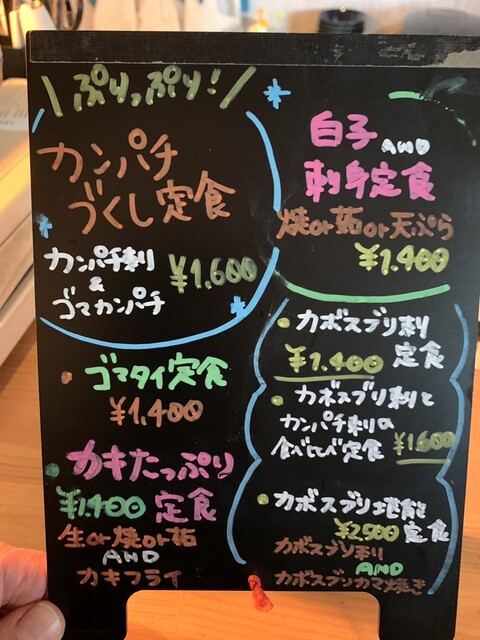 ぷりっぷり!
カンパチ
づくし定食
カンパチ刺
&
ゴマカンパチ
¥1,600
白子 AND
刺身定食
焼or茹or天ぷら
¥1,400
・ゴマタイ定食
¥1,400
・カキたっぷり
¥1,400 定食
生or焼or茹
AND
カキフライ
・カボスブリ刺
¥1,400 定食
・カボスブリ刺と
カンパチ刺の
食べ比べ定食 ¥1,600
・カボスブリ堪能
¥2,500 定食
カボスブリ刺
AND
カボスブリカマ焼き